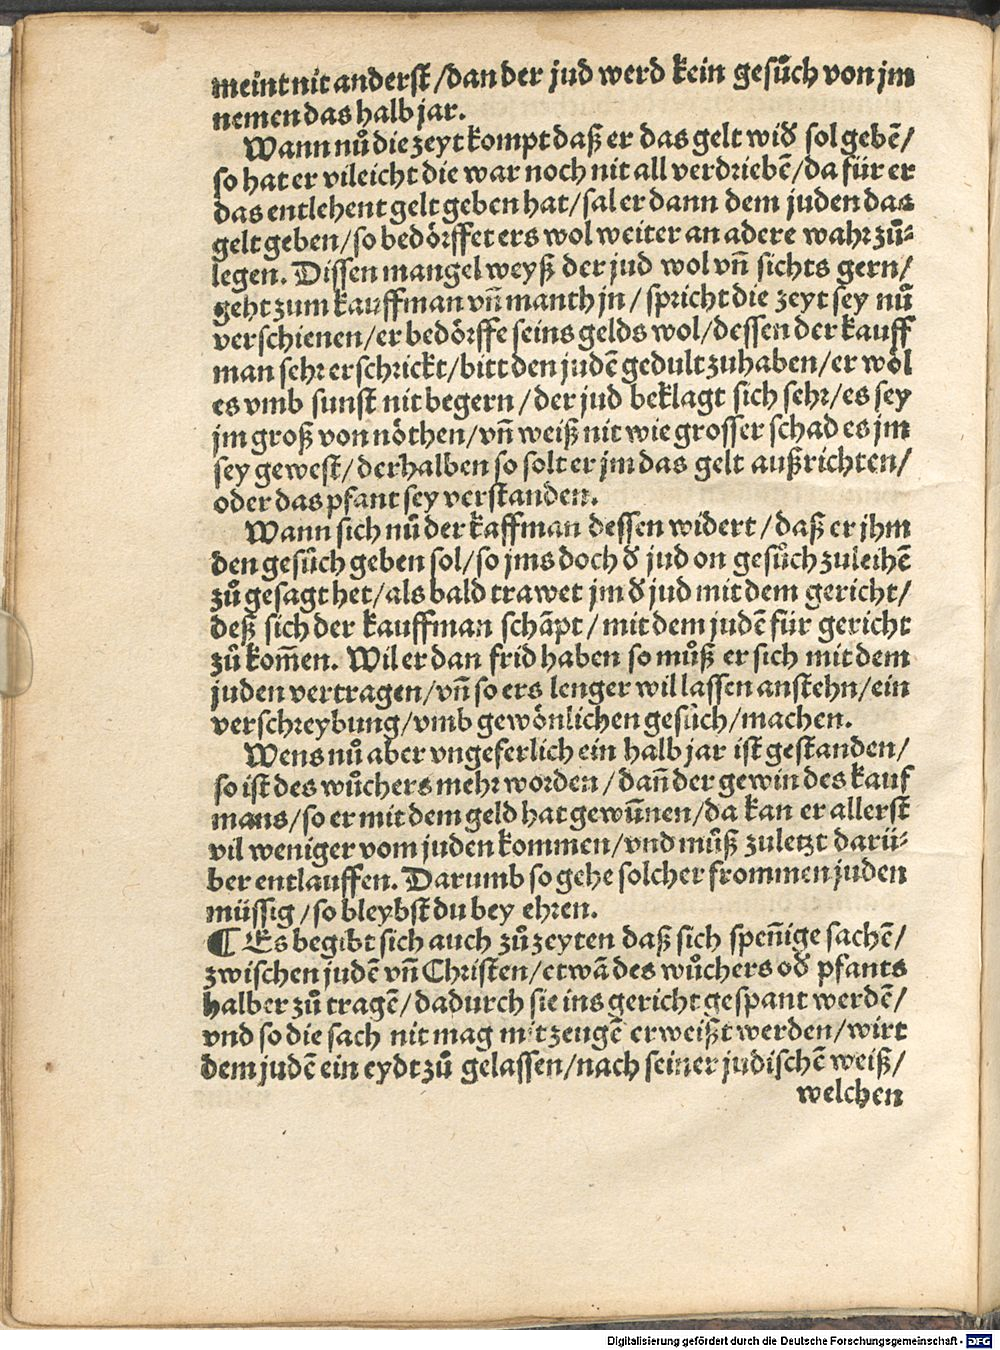 meint nit anderst / dan der jud werd kein gesůch von jm
nemen das halb jar.
Wann nů die zeyt kompt daß er das gelt wid̕ sol gebē /
so hat er vileicht die war noch nit all verdriebē / da für er
das entlehent gelt geben hat / sal er dann dem juden das
gelt geben / so bedörffet ers wol weiter an adere wahr zů-
legen. Dissen mangel weyß der jud wol vñ sichts gern /
geht zum kauffman vñ manth jn / spricht die zeyt sey nů
verschienen / er bedörffe seins gelds wol / dessen der kauff
man sehr erschrickt / bitt den judē gedult zuhaben / er wöl
es vmb sunst nit begern / der jud beklagt sich sehr / es sey
jm groß von nöthen / vñ weiß nit wie grosser schad es jm
sey gewest / derhalben so solt er jm das gelt außrichten /
oder das pfant sey verstanden.
Wann sich nů der kaffman dessen widert / daß er jhm
den gesůch geben sol / so jms doch d̕ jud on gesůch zuleihē
zů gesagt het / als bald trawet jm d̕ jud mit dem gericht /
deß sich der kauffman schāpt / mit dem judē für gericht
zů kom̄en. Wil er dan frid haben so můß er sich mit dem
juden vertragen / vñ so ers lenger wil lassen anstehn / ein
verschreybung / vmb gewönlichen gesůch / machen.
Wens nů aber vngeferlich ein halb jar ist gestanden /
so ist des wůchers mehr worden / dañ der gewin des kauf
mans / so er mit dem geld hat gewūnen / da kan er allerst
vil weniger vom juden kommen / vnd můß zuletzt darü-
ber entlauffen. Darumb so gehe solcher frommen juden
müssig / so bleybst du bey ehren.
¶ Es begibt sich auch zů zeyten daß sich speñige sachē /
zwischen judē vñ Christen / etwā des wůchers od̕ pfants
halber zů tragē / dadurch sie ins gericht gespant werdē /
vnd so die sach nit mag mit zeugē erweißt werden / wirt
dem judē ein eydt zů gelassen / nach seiner judischē weiß /
welchen
Digitalisierung gefördert durch die Deutsche Forschungsgemeinschaft - DFG